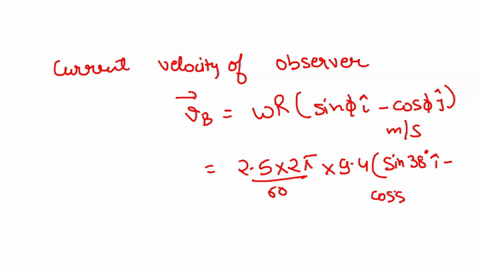 Current velocity of observer
v⃗_B = ωR (sinϕ î - cosϕ ĵ)
m/s
= 2.5×2π/60 × 9.4 (sin38° î -
coss